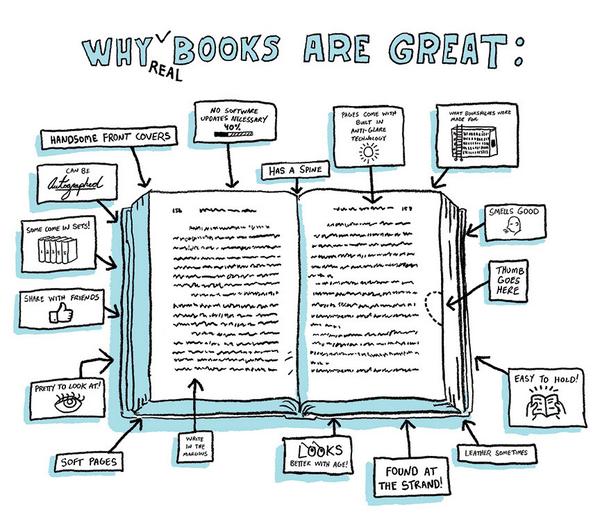 WHY BOOKS ARE GREAT:
REAL
HANDSOME FRONT COVERS
NO SOFTWARE
UPDATES NECESSARY
40%
HAS A SPINE
PAGES COME WITH
BUILT IN
ANTI-GLARE
TECHNOLOGY
WHAT BOOKSHELVES WERE
MADE FOR
CAN BE
Autographed
SOME COME IN SETS!
1 2 3 4 5
SHARE WITH FRIENDS
PRETTY TO LOOK AT!
SOFT PAGES
WRITE
IN THE
MARGINS
LOOKS
BETTER WITH AGE!
FOUND AT
THE STRAND!
LEATHER SOMETIMES
EASY TO HOLD!
THUMB
GOES
HERE
SMELLS GOOD
156
157